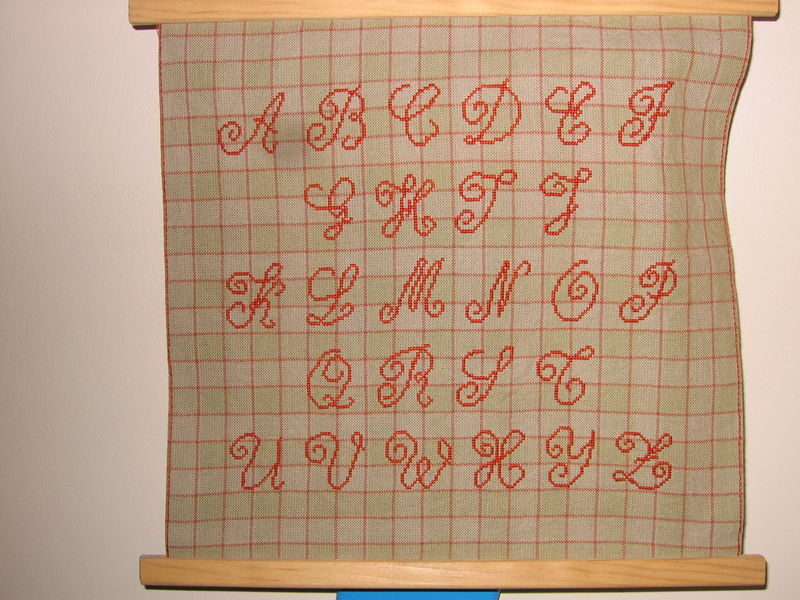 A B C D E F
G H I J
K L M N O P
Q R S T
U V W X Y Z